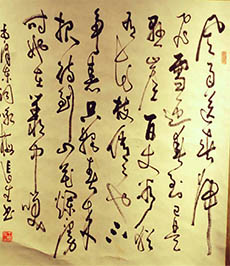 风雨送春归
飞雪迎春到已是
悬崖百丈冰犹
有花枝俏俏也不
争春只把春来
报待到山花烂漫
时她在丛中笑
毛泽东词咏梅